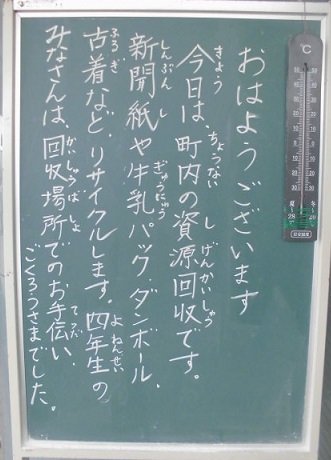 おはようございます
きょう ちょうない しげんかいしゅう
今日は、町内の資源回収です。
しんぶんし ぎゅうにゅう
新開紙や牛乳パック、ダンボール、
ふるぎ よねんせい
古着など、リサイクルします。四年生の
かいしゅうばしょ てつだ
みなさんは、回収場所でのお手伝い、
ごくろうさまでした。
℃